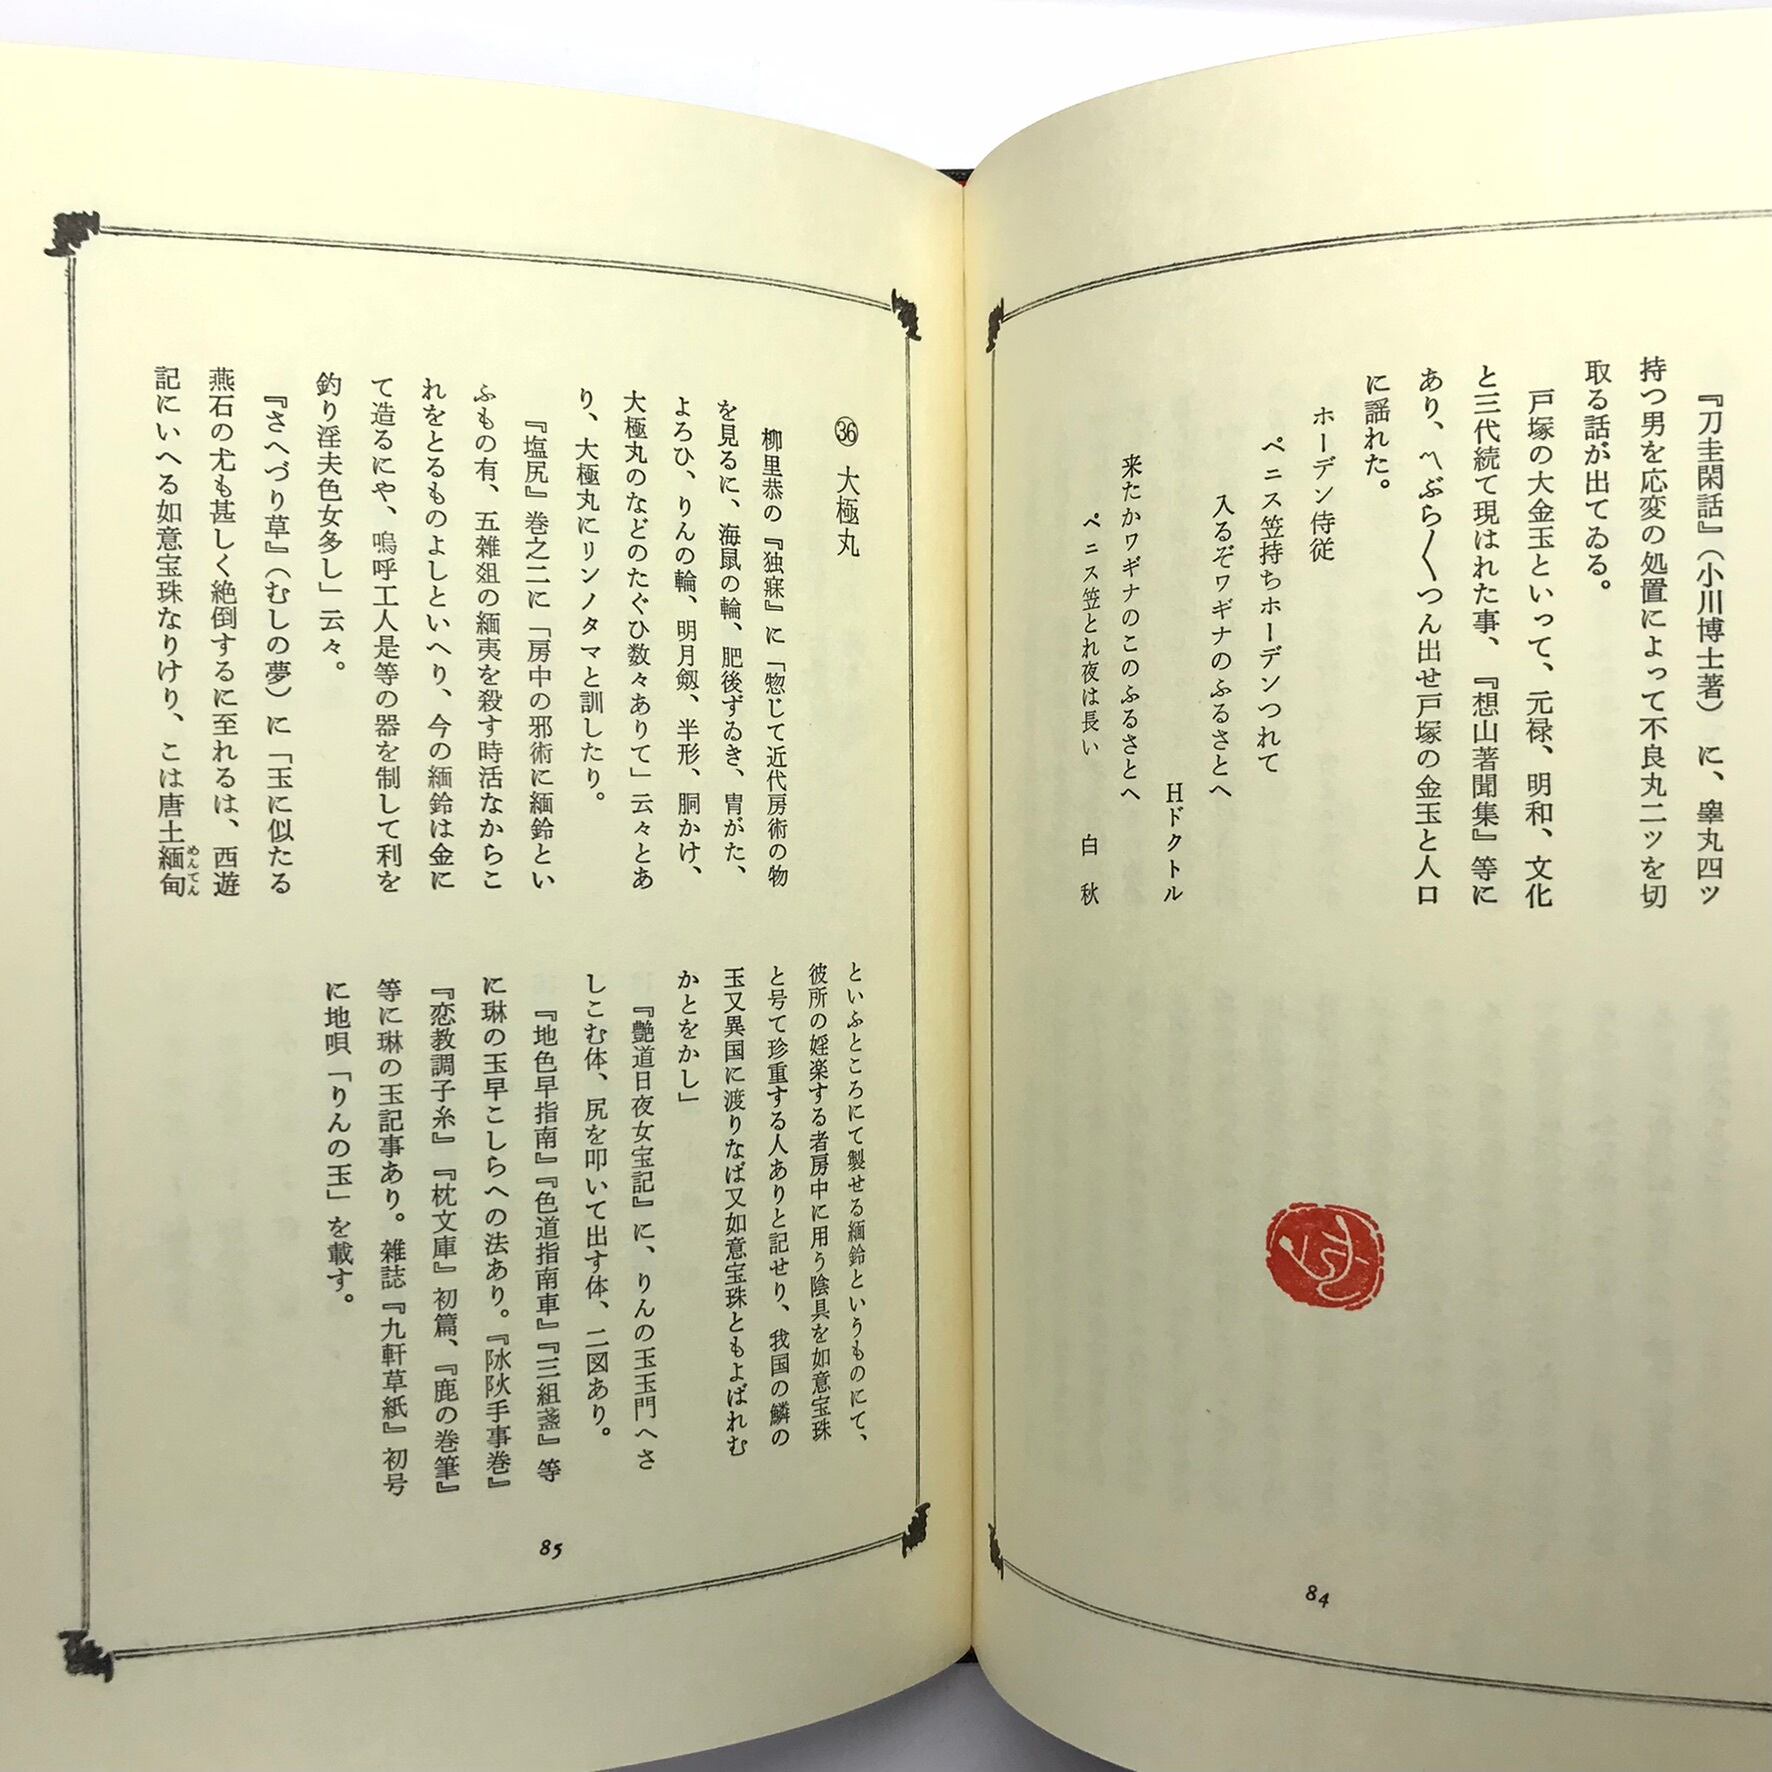 『刀圭閑話』(小川博士著) に、睾丸四ツ
持つ男を応変の処置によって不良丸二ツを切
取る話が出てゐる。
戸塚の大金玉といって、元禄、明和、文化
と三代続て現はれた事、『想山著聞集』等に
あり、〽ぶら〳〵つん出せ戸塚の金玉と人口
に謡れた。
ホーデン侍従
ペニス笠持ちホーデンつれて
入るぞワギナのふるさとへ
Hドクトル
来たかワギナのこのふるさとへ
ペニス笠とれ夜は長い 白秋
84
㊱ 大極丸
柳里恭の『独寐』に「惣じて近代房術の物
を見るに、海鼠の輪、肥後ずゐき、冑がた、
よろひ、りんの輪、明月劔、半形、胴かけ、
大極丸のなどのたぐひ数々ありて」云々とあ
り、大極丸にリンノタマと訓したり。
『塩尻』巻之二に「房中の邪術に緬鈴とい
ふもの有、五雑爼の緬夷を殺す時活なからこ
れをとるものよしといへり、今の緬鈴は金に
て造るにや、嗚呼工人是等の器を制して利を
釣り淫夫色女多し」云々。
『さへづり草』(むしの夢) に「玉に似たる
燕石の尤も甚しく絶倒するに至れるは、西遊
記にいへる如意宝珠なりけり、こは唐土緬甸
めんてん
といふところにて製せる緬鈴というものにて、
彼所の婬楽する者房中に用う陰具を如意宝珠
と号て珍重する人ありと記せり、我国の鱗の
玉又異国に渡りなば又如意宝珠ともよばれむ
かとをかし」
『艶道日夜女宝記』に、りんの玉玉門へさ
しこむ体、尻を叩いて出す体、二図あり。
『地色早指南』『色道指南車』『三組盞』等
に琳の玉早こしらへの法あり。『手事巻』
『恋教調子糸』『枕文庫』初篇、『鹿の巻筆』
等に琳の玉記事あり。雑誌『九軒草紙』初号
に地唄「りんの玉」を載す。
85